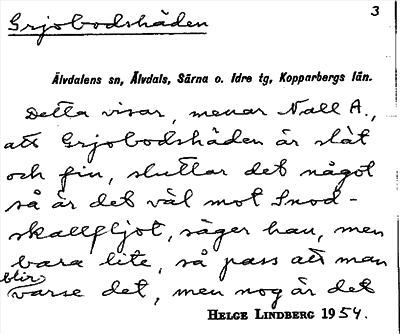 Grjobodshäden
3
Älvdalens sn, Älvdals, Särna o. Idre tg, Kopparbergs län.
Detta visar, menar Nall A.,
att Grjobodshäden är slät
och fin, sluttar det något
så är det väl mot Snod-
skallfljot, säger han, men
bara lite, så pass att man
blir
varse det, men nog är det
HELGE LINDBERG 1954.